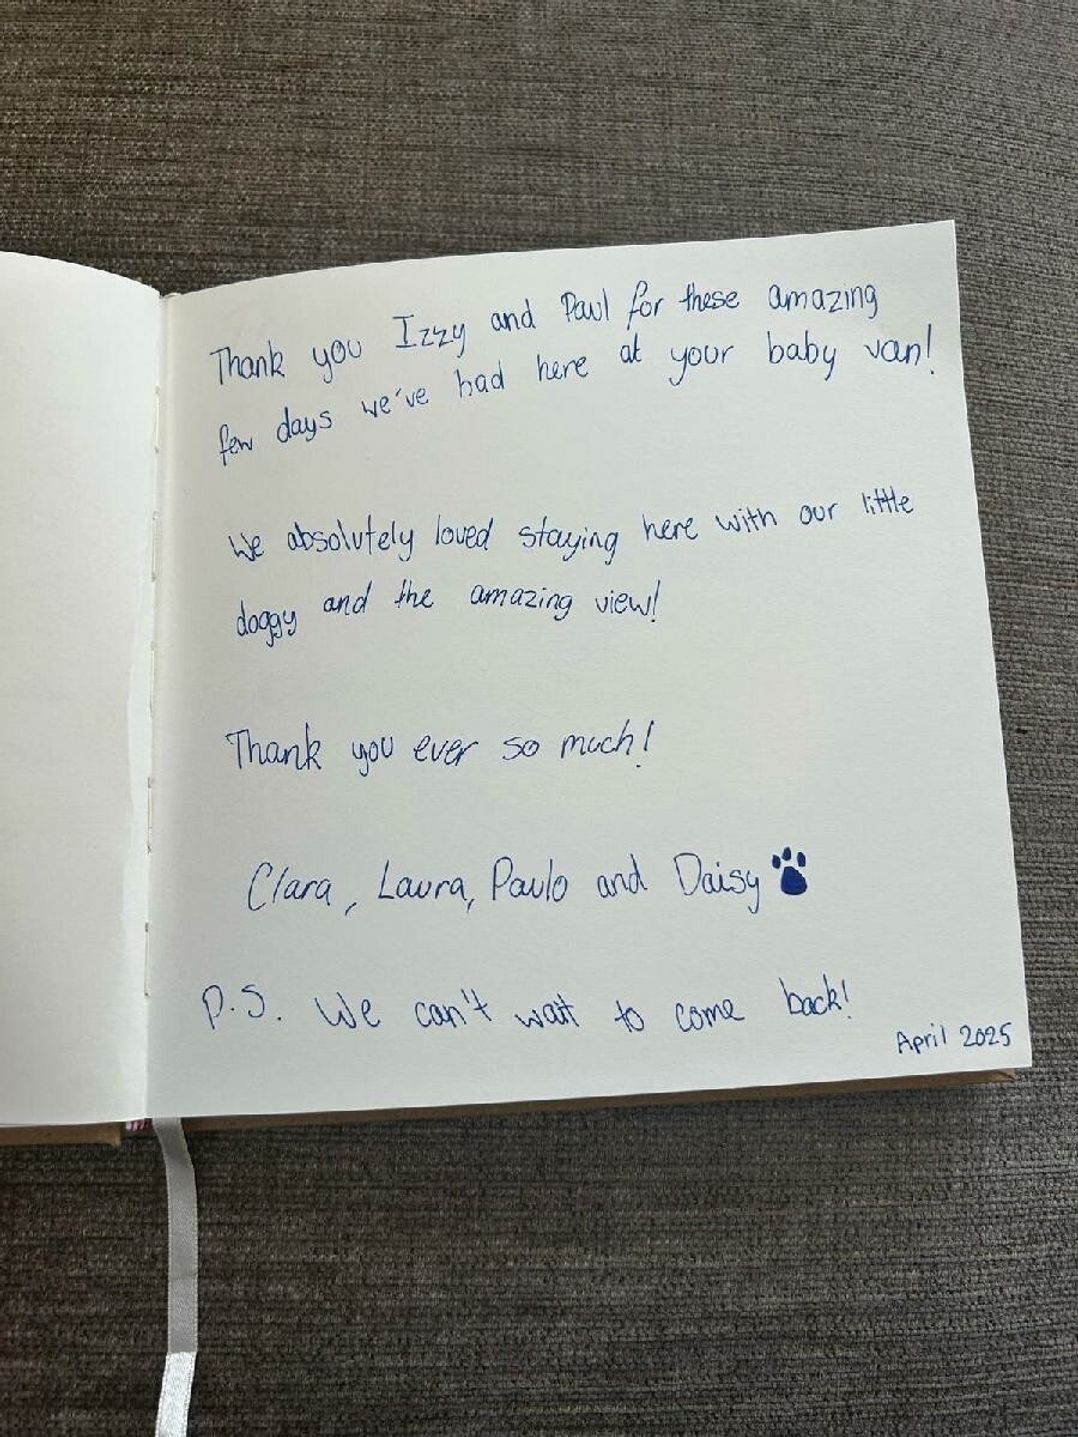 Thank you Izzy and Paul for these amazing
few days we've had here at your baby van!
We absolutely loved staying here with our little
doggy and the amazing view!
Thank you ever so much!
Clara, Laura, Paulo and Daisy
P.S. We can't wait to come back!
April 2025